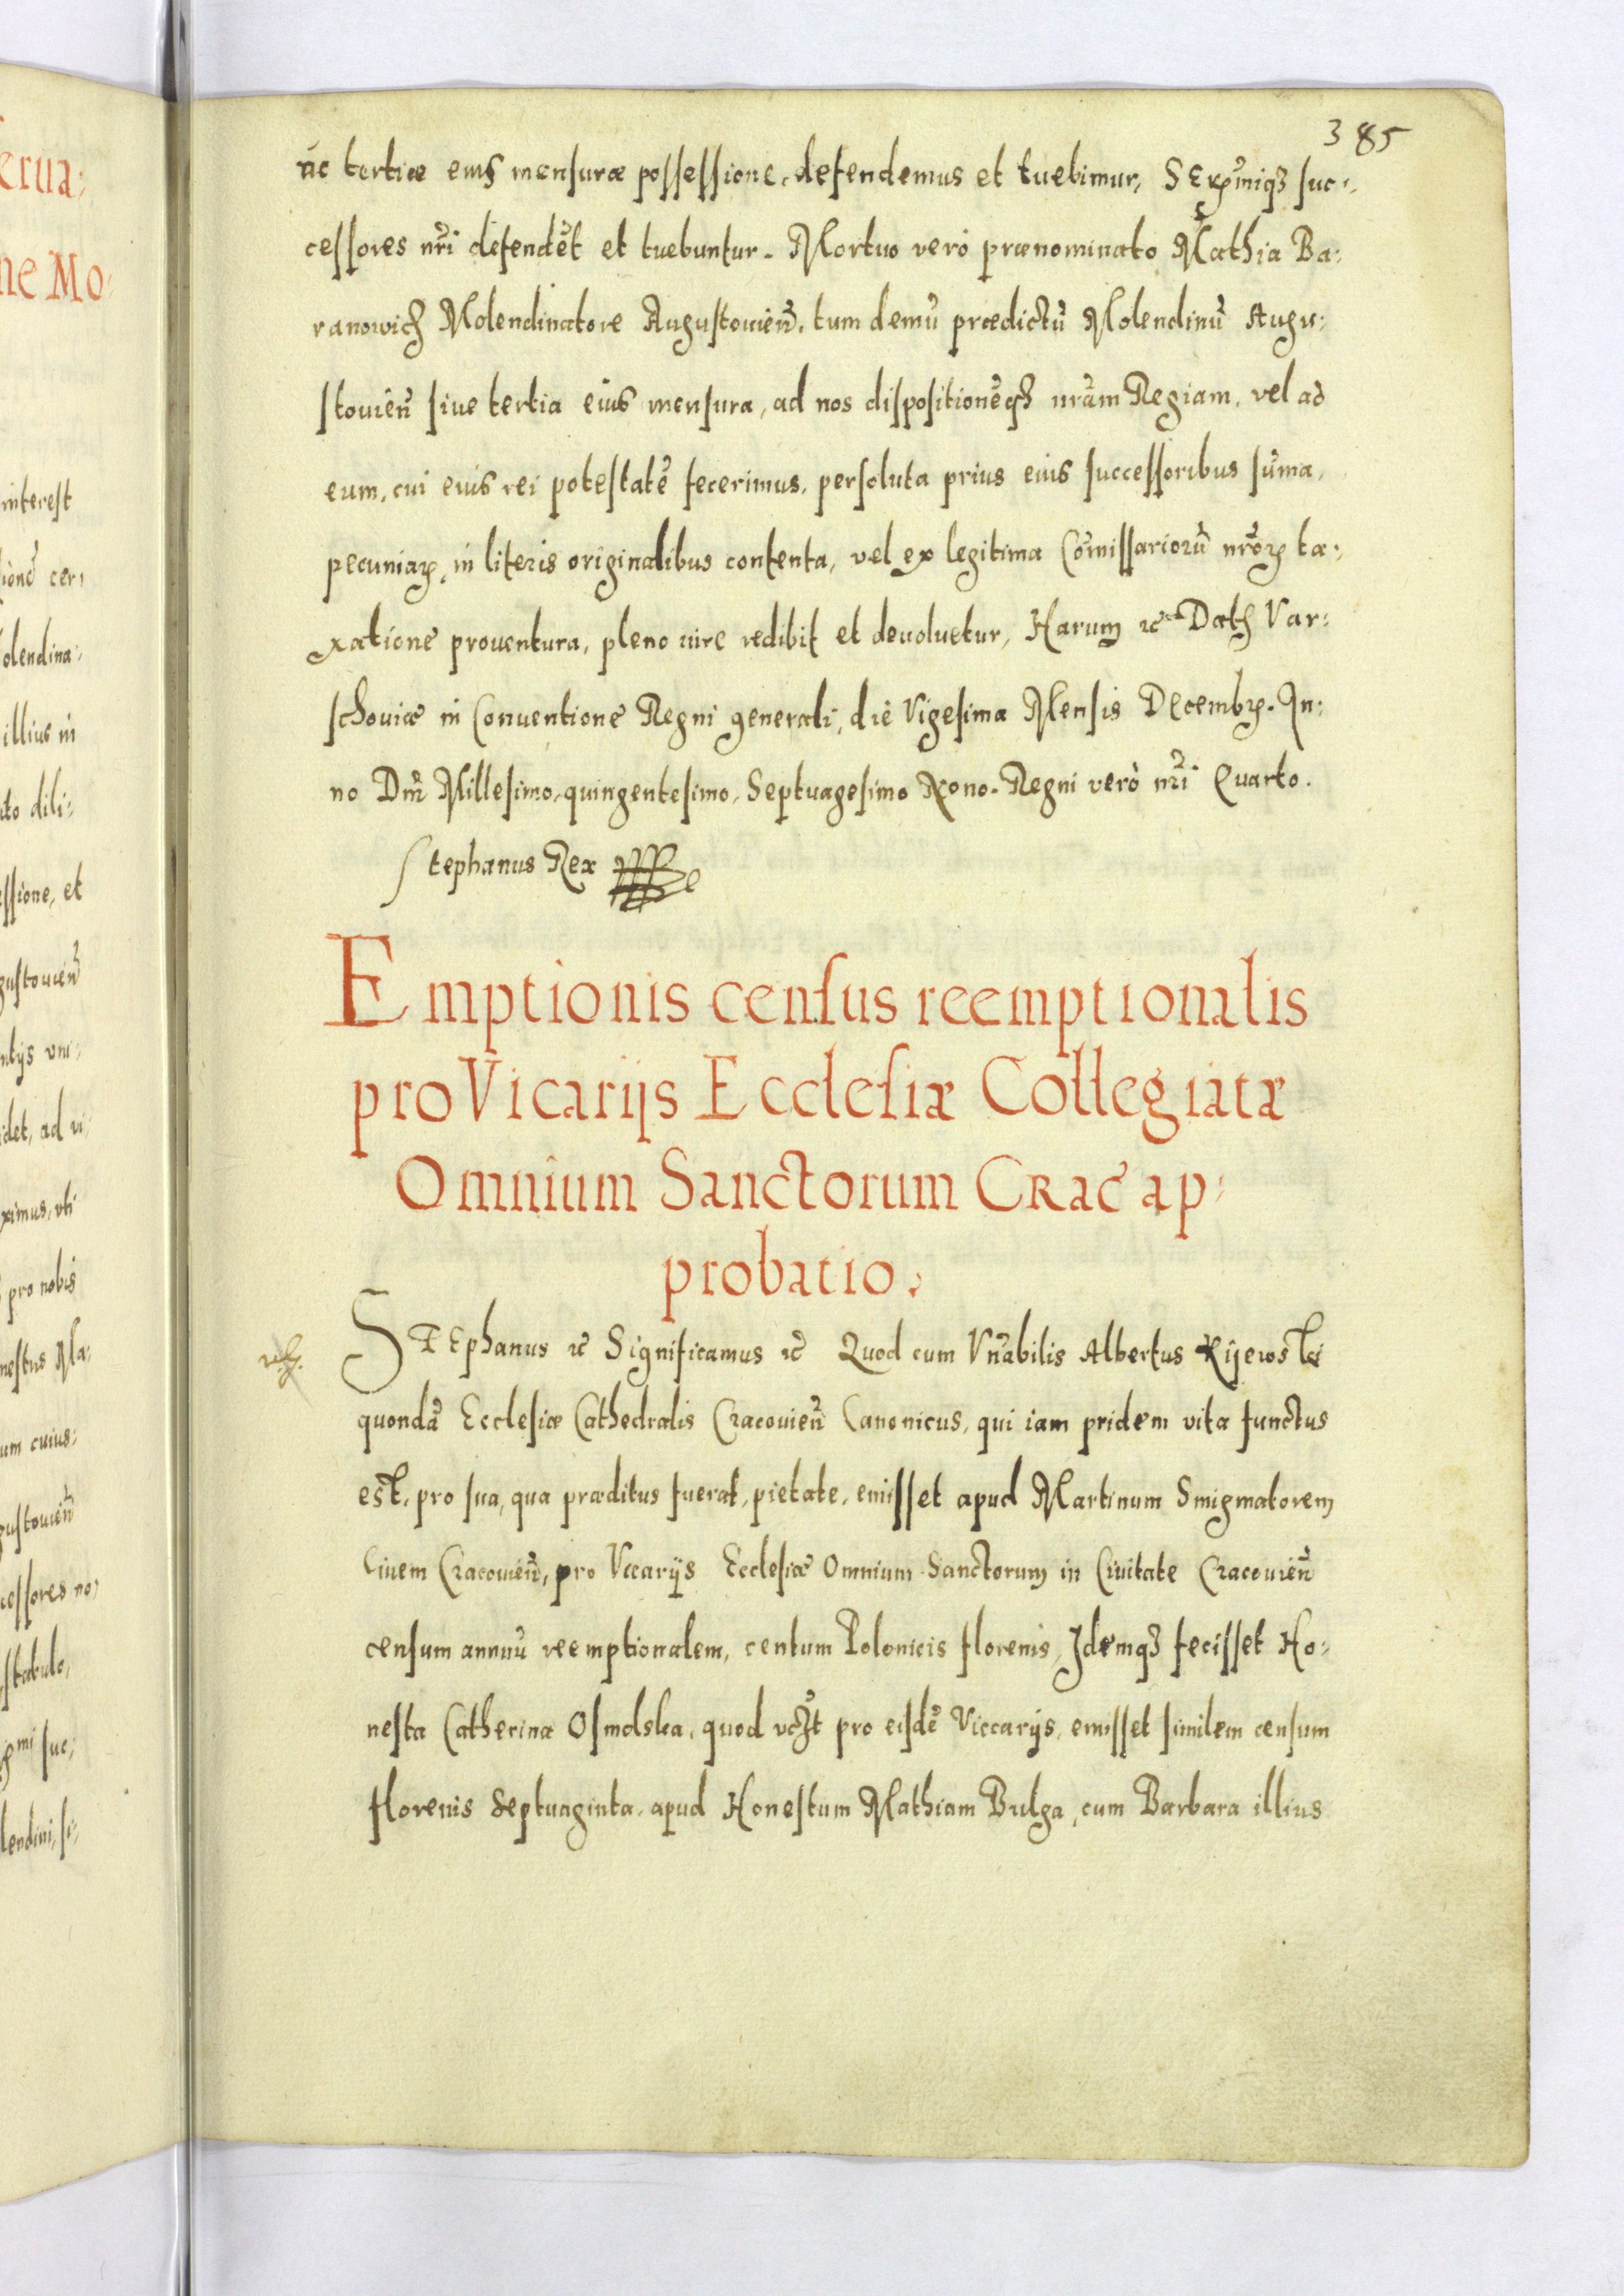 385
ue tertiae eius mensurae possessione, defendemus et tuebimur, Serꝑmiqꝫ suc:
cessores nr̃i defendẽt et tuebuntur. Mortuo verò praenominato Mathia Ba:
ranowicz Molendinatore Augustouieñ, tum demũ praedictũ Molendinũ Augu:
stouieñ siue tertia eius mensura, ad nos dispositionẽqꝫ nr̃am Regiam, vel ad
eum, cui eius rei potestatẽ fecerimus, persoluta prius eius successoribus sũma,
pecuniaꝝ, in literis originalibus contenta, vel ex legitima Com̃issariorũ nr̃oꝝ ta:
xatione prouentura, pleno iure redibit et deuoluetur, Harum etc Datꝫ Var:
schouiae in Conuentione Regni generali, die Vigesima Mensis Decembꝝ. An:
no Dñi Millesimo, quingentesimo, Septuagesimo Nono. Regni verò nr̃i Quarto.
Stephanus Rex
Emptionis census reemptionalis
pro Vicarijs Ecclesiæ Collegiatæ
Omnium Sanctorum Crac̃ ap:
probatio.
STEphanus etc Significamus etc Quod cum Vñabilis Albertus Kijewski
quondã Ecclesiae Cathedralis Cracouieñ Canonicus, qui iam pridem vita functus
est, pro sua, qua praeditus fuerat, pietate, emisset apud Martinum Smigmatorem
Ciuem Cracouieñ, pro Viccarijs Ecclesiae Omnium Sanctorum in Ciuitate Cracouieñ
censum annuũ reemptionalem, centum Polonicis florenis, Idemqꝫ fecisset Ho:
nesta Catherina Osmolska, quod vcꝫt pro eisdẽ Viccarijs, emisset similem censum
florenis Septuaginta, apud Honestum Mathiam Bulga, cum Barbara illius